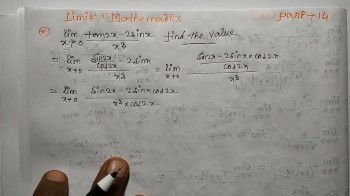 Limit: Mathematics Part-14
lim x→0 tan2x-2sinx / x³ find the value
= lim x→0 sin2x/cos2x - 2sin / x³ = lim x→0 sin2x-2sinx cos2x / cos2x / x³
= lim x→0 sin2x-2sinx cos2x / x³ x cos2x